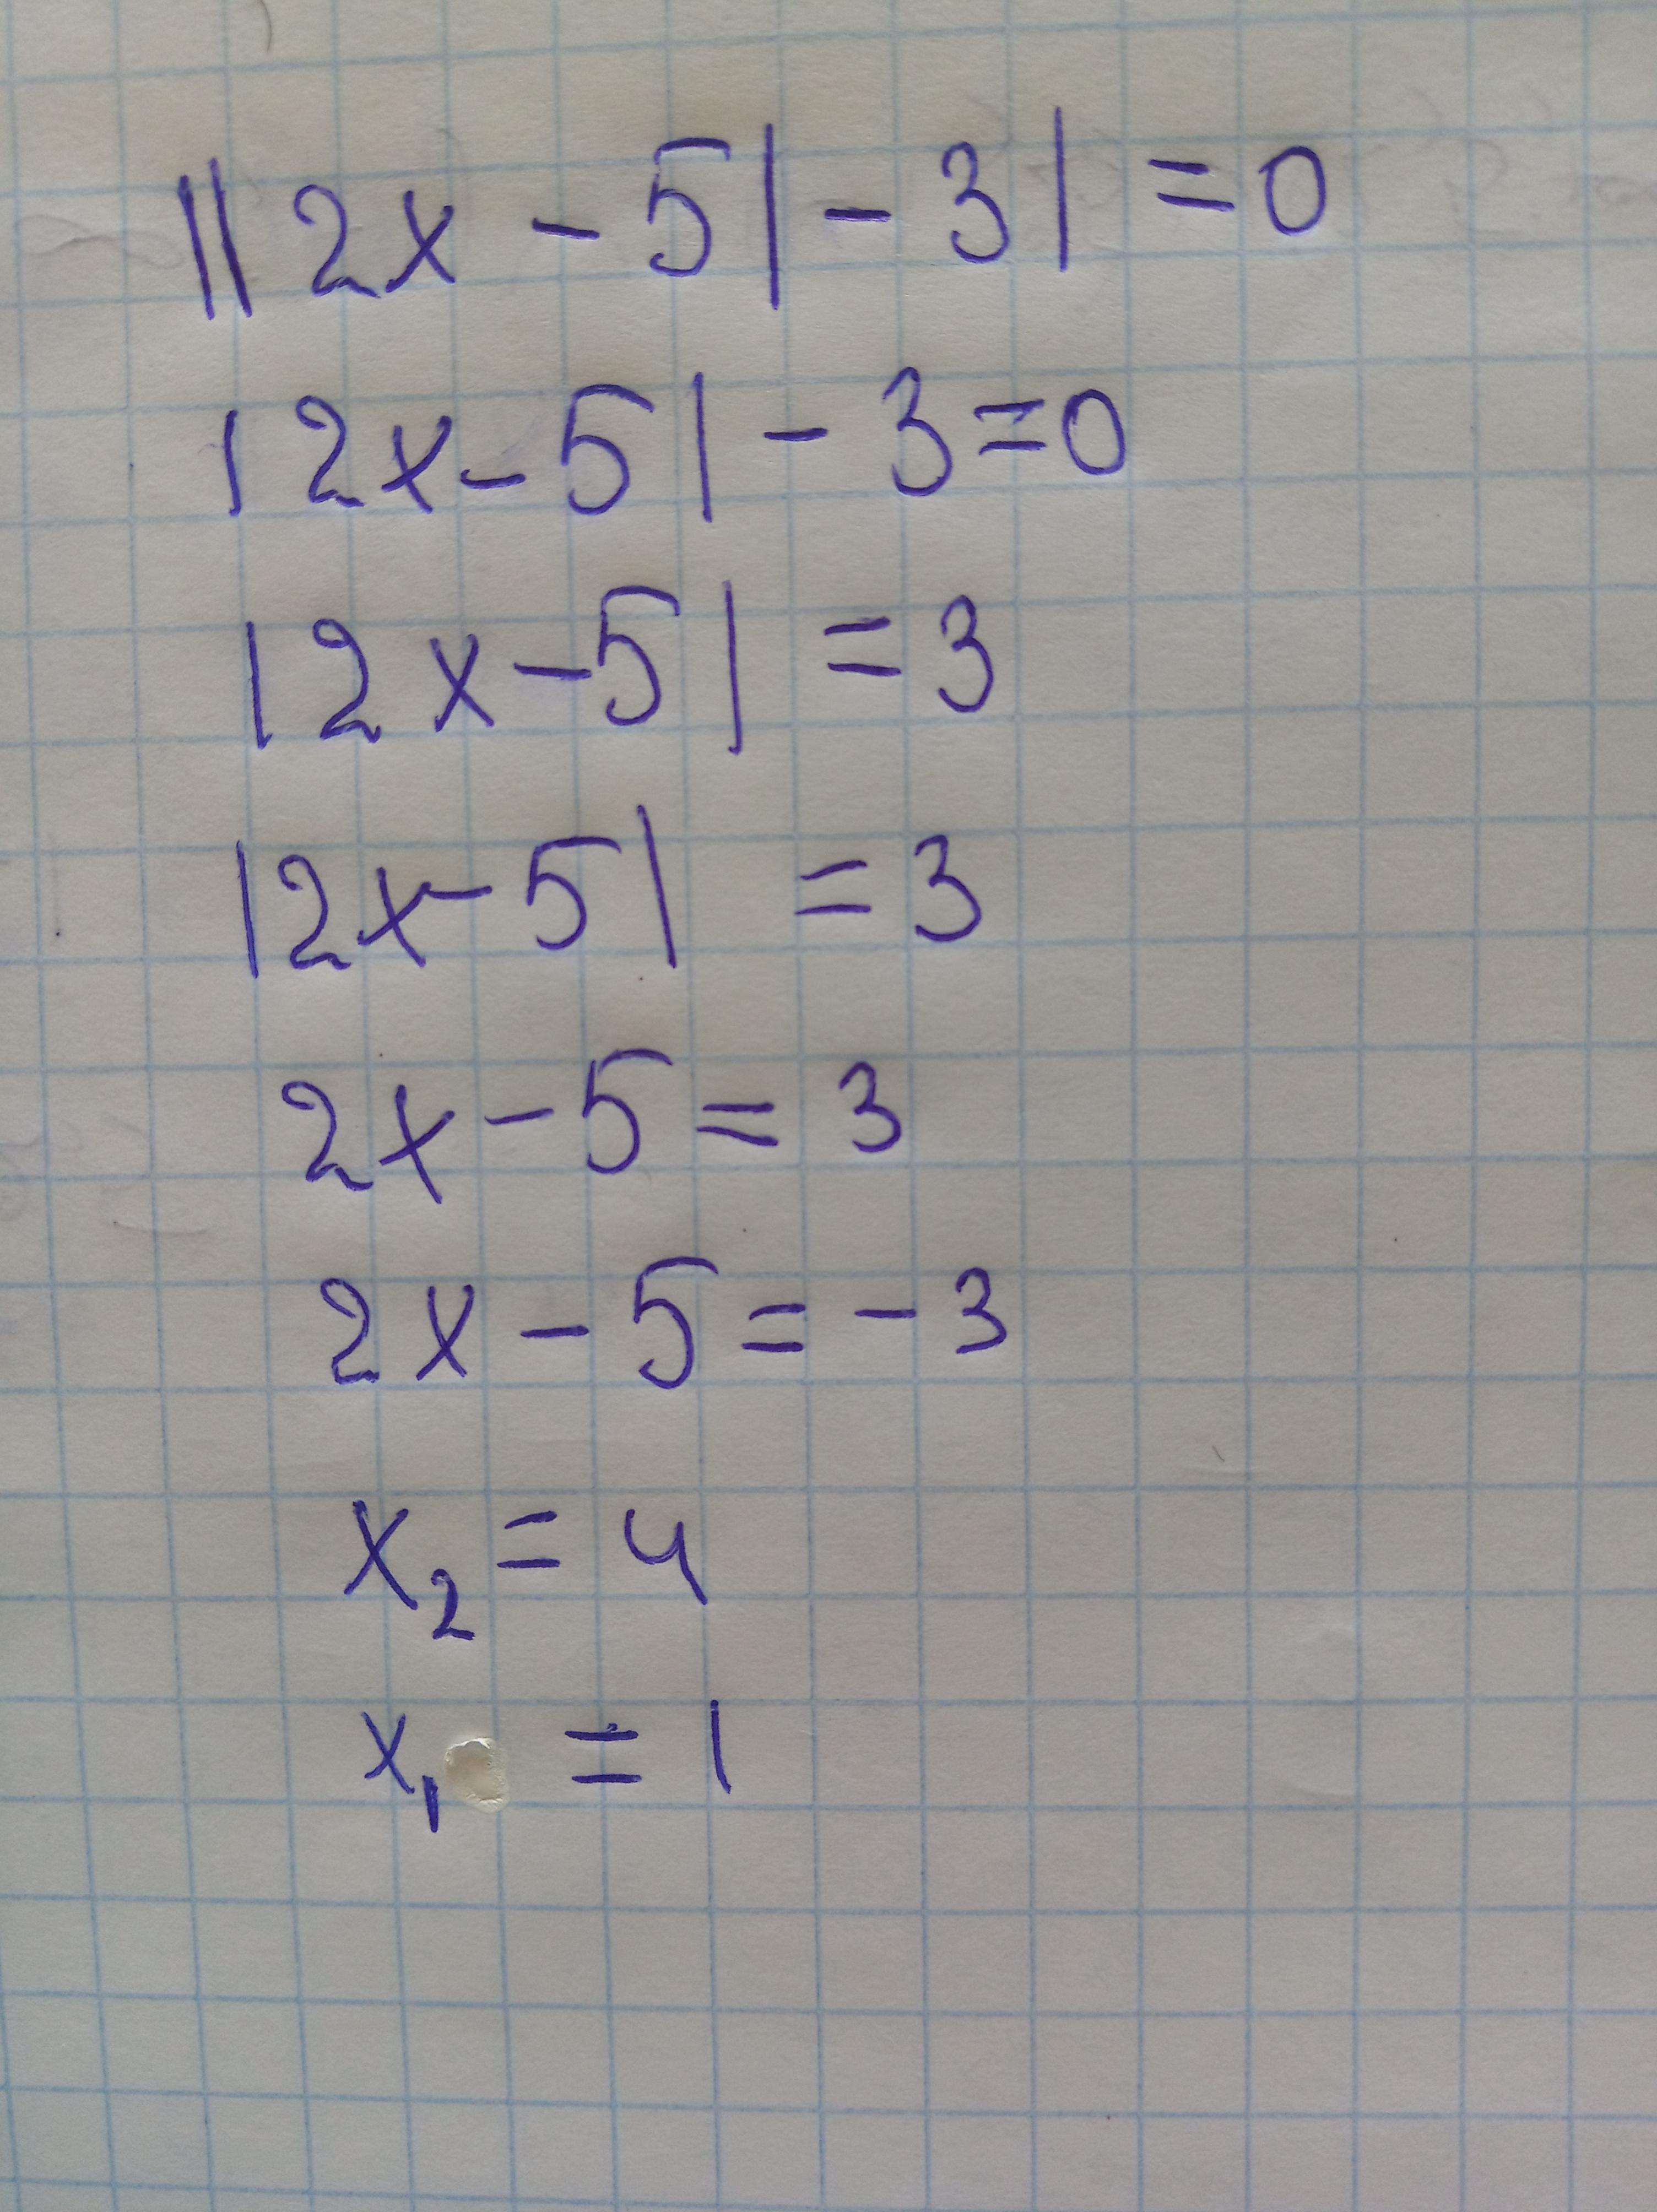 ||2x - 5| - 3| = 0
|2x - 5| - 3 = 0
|2x - 5| = 3
|2x - 5| = 3
2x - 5 = 3
2x - 5 = - 3
x₂ = 4
x₁ = 1